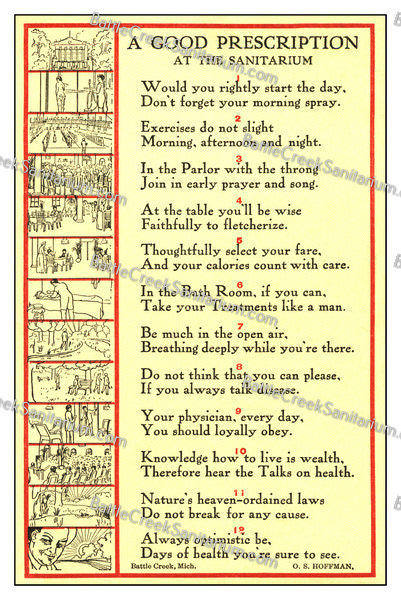 A GOOD PRESCRIPTION
AT THE SANITARIUM
1
Would you rightly start the day,
Don't forget your morning spray.
2
Exercises do not slight
Morning, afternoon and night.
3
In the Parlor with the throng
Join in early prayer and song.
4
At the table you'll be wise
Faithfully to fletcherize.
5
Thoughtfully select your fare,
And your calories count with care.
6
In the Bath Room, if you can,
Take your Treatments like a man.
7
Be much in the open air,
Breathing deeply while you're there.
8
Do not think that you can please,
If you always talk disease.
9
Your physician, every day,
You should loyally obey.
10
Knowledge how to live is wealth,
Therefore hear the Talks on health.
11
Nature's heaven-ordained laws
Do not break for any cause.
12
Always optimistic be,
Days of health you're sure to see.
Battle Creek, Mich. O. S. HOFFMAN,
BattleCreekSanitarium.com
BattleCreekSanitarium.com
BattleCreekSanitarium.com
BattleCreekSanitarium.com
BattleCreekSanitarium.com
BattleCreekSanitarium.com